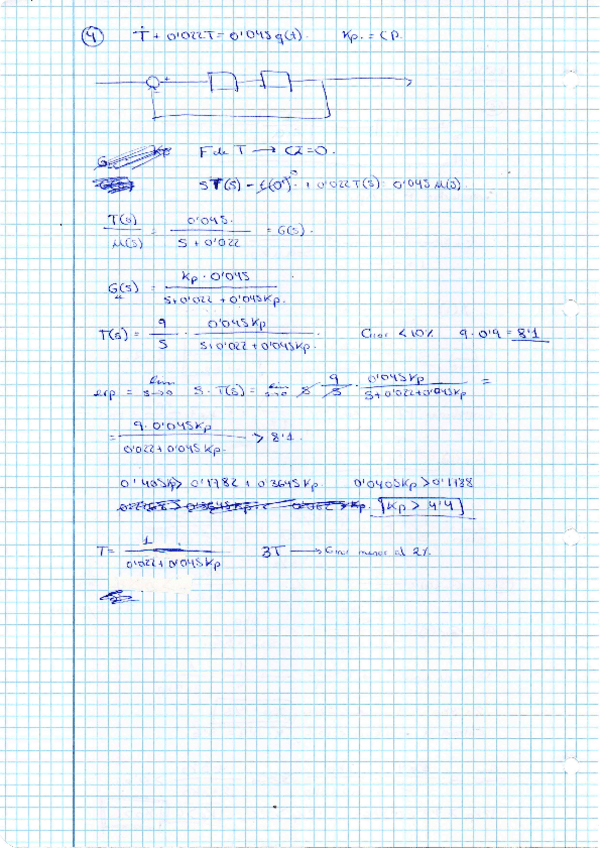 4 Ṫ + 0'022T = 0'045 q(t). Kp. = CP.
+
G Kp F de T → CI = 0.
G(s) sT(s) - t(0⁺)⁰ + 0'022T(s) 0'045 μ(s).
T(s)/μ(s) = 0'045./(s + 0'022) = G(s).
G(s) = Kp · 0'045/(s+0'022 + 0'045Kp.)
T(s) = 9/s · 0'045Kp/(s+0'022+0'045Kp.) Error < 10% 9·0'9 = 8'1
erp = lim s→0 s·T(s) = lim s→0 s · 9/s · 0'045Kp/(s+0'022+0'045Kp) =
= 9·0'045Kp/(0'022+0'045Kp.) > 8'1.
0'405Kp > 0'1782 + 0'3645Kp 0'0405Kp > 0'1738
Kp > 4'4
T = 1/(0'022+0'045Kp) 3T → Error menor al 2%